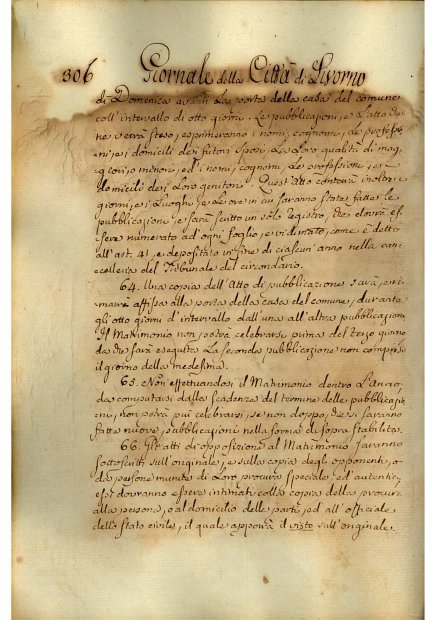 306 Giornale della Città di Livorno
di Domenica avanti la porta della casa del comune
coll'intervallo di otto giorni. Le pubblicazioni, e l'atto che
ne verrà steso, esprimeranno i nomi, cognomi, le professio
ni, e i domicili dei futuri sposi, la loro qualità di mag
giori, o minori, ed i nomi, cognomi, le professioni, e i
domicili dei loro genitori. Quest'Atto conterrà inoltre i
giorni, e i luoghi, e le ore in cui saranno state fatte le
pubblicazioni, e sarà scritto un sólo registro, che dovrà es
sere numerato ad ogni foglio, e vidimato, come è detto
all'art. 41, e depositato in fine di ciascun'anno nella can
celleria del Tribunale del circondario.
64. Una copia dell'Atto di pubblicazione sarà, e ri
marrà affissa alla porta della casa del comune, durante
gli otto giorni d'intervallo dall'una all'altra pubblicazione
Il Matrimonio non potrà celebrarsi prima del terzo giorno
da che sarà eseguita la seconda pubblicazione non compreso
il giorno della medesima.
65. Non effettuandosi il Matrimonio dentro l'anno,
da computarsi dalla scadenza del termine delle pubblicazio
ni, non potrà più celebrarsi, se non doppo, che si saranno
fatte nuove pubblicazioni nella forma di sopra stabilita.
66. Gli atti di opposizione al Matrimonio saranno
sottoscritti sull'originale, e sulla copia degli opponenti, o
da persone munite di loro procura speciale ed autentica,
e si dovranno essere intimati colla copia della procura
alla persona, o al domicilio delle parti, ed all'officiale
dello stato civile, il quale apporrà il visto sull'originale.